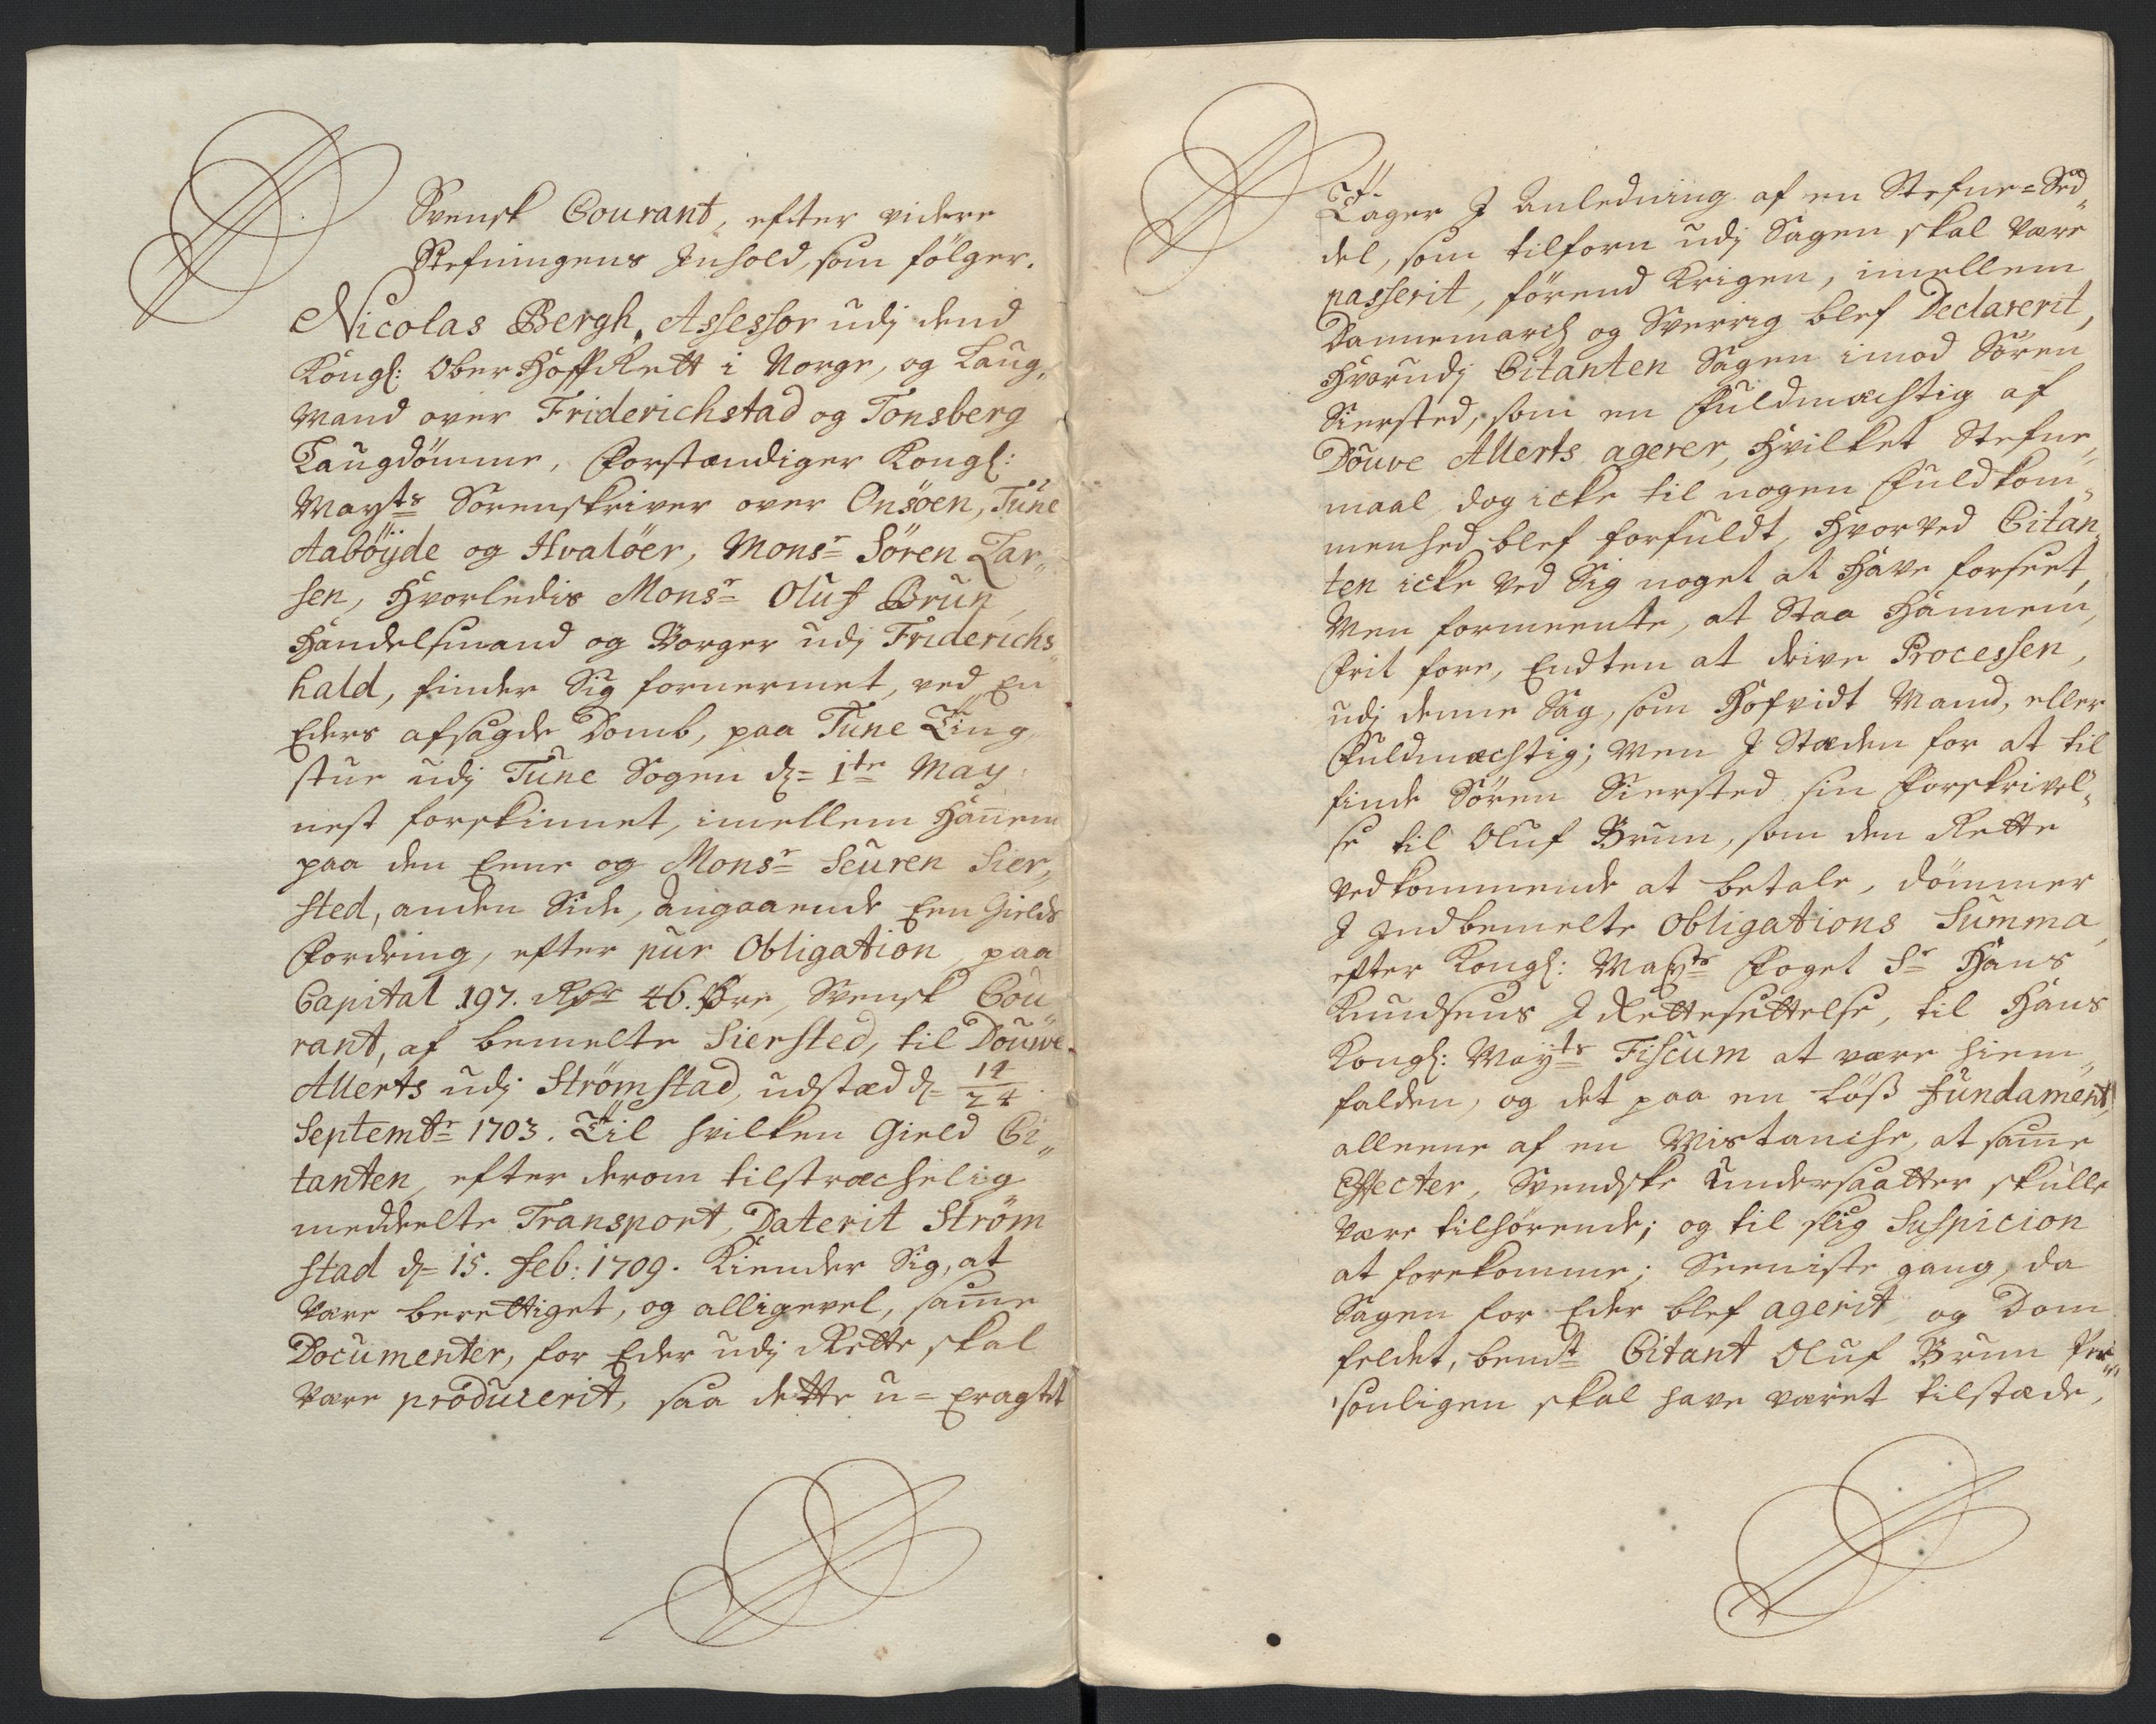 Svensk Courant, efter videre
Stefningens Inhold, som fölger.
Nicolas Bergh, Assessor udj dend
Kongl: Ober Hoff Rett i Norge, og Laug„
Mand over Friderichstad og Tonsberg
Laugdömme, Forstændiger Kongl:
Mayts Sorenskriver over Onsöen, Tune
Aaböyde og Hvalöer, Monsr Sören Lar„
sen, Hvorledis Monsr Oluf Brun,
Handelsmand og Borger udj Friderichs„
hald, finder Sig fornermet, ved En
Eders afsagde Domb, paa Tune Ting„
stue udj Tune Sogen d= 1te May:
nest forskinnet, imellem Hannem
paa den Eene og Monsr Seuren Sier„
sted, anden Side, angaaende Een Gields
Fordring, efter pur Obligation, paa
Capital 197. Rdr 46. Öre, Svensk Cou„
rant, af bemelte Siersted, til Douwe
Allerts udj Strömstad, udstæd d= 14/24
Septembr 1703. Til hvilken Gield Ci„
tanten, efter derom tilstræchelig
meddeelte Transport, Daterit Ström
stad d= 15. Feb: 1709. Kiender Sig, at
være berettiget, og alligevel, samme
Documenter, for Eder udj Rette skal
være producerit, saa dette u=eragtet
Tager I Anledning af en Stefne=Sed„
del, som tilforn udj Sagen skal være
passerit, förend Krigen, imellem
Dannemarch og Sverrig blef Declarerit,
Hvorudj Citanten Sagen imod Sören
Siersted, som en Fuldmæchtig af
Douwe Allerts agerer, Hvilket Stefne„
maal, dog icke til nogen Fuldkom„
menhed blef forfuldt, Hvorved Citan„
ten icke ved Sig noget at Have forseet,
Men formeente, at Staa Hannem,
Frit fore, Endten at drive Processen,
udj denne Sag, som Hofvidt Mand, eller
Fuldmæchtig; Men I Stæden for at til
finde Sören Siersted sin Forskrivel„
se til Oluf Brun, som den Rette
vedkommende at betale, dömmer
I Indbemelte Obligations Summa,
efter Kongl: Mayts Foget Sr Hans
Knudsens I Rettesettelse, til Hans
Kongl: Mayts Fiscum at være hiem„
falden, og det paa en Löß Fundament,
alleene af en Mistanche, at samme
Effecter, Svendske Undersaatter skulle
være tilhörende; og til slig Suspicion
at forekomme; Seeniste gang, da
Sagen for Eder blef agerit, og Dom
feldet, bemdt Citant Oluf Brun Per„
sonligen skal have været tilstæde,